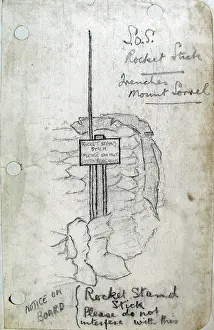 S.O.S.
Rocket Stick
Trenches
Mount Sorrel
ROCKET STAND
STICK
PLEASE DO NOT
NOTICE ON
BOARD
Rocket Stand
Stick
Please do not
interfere with this